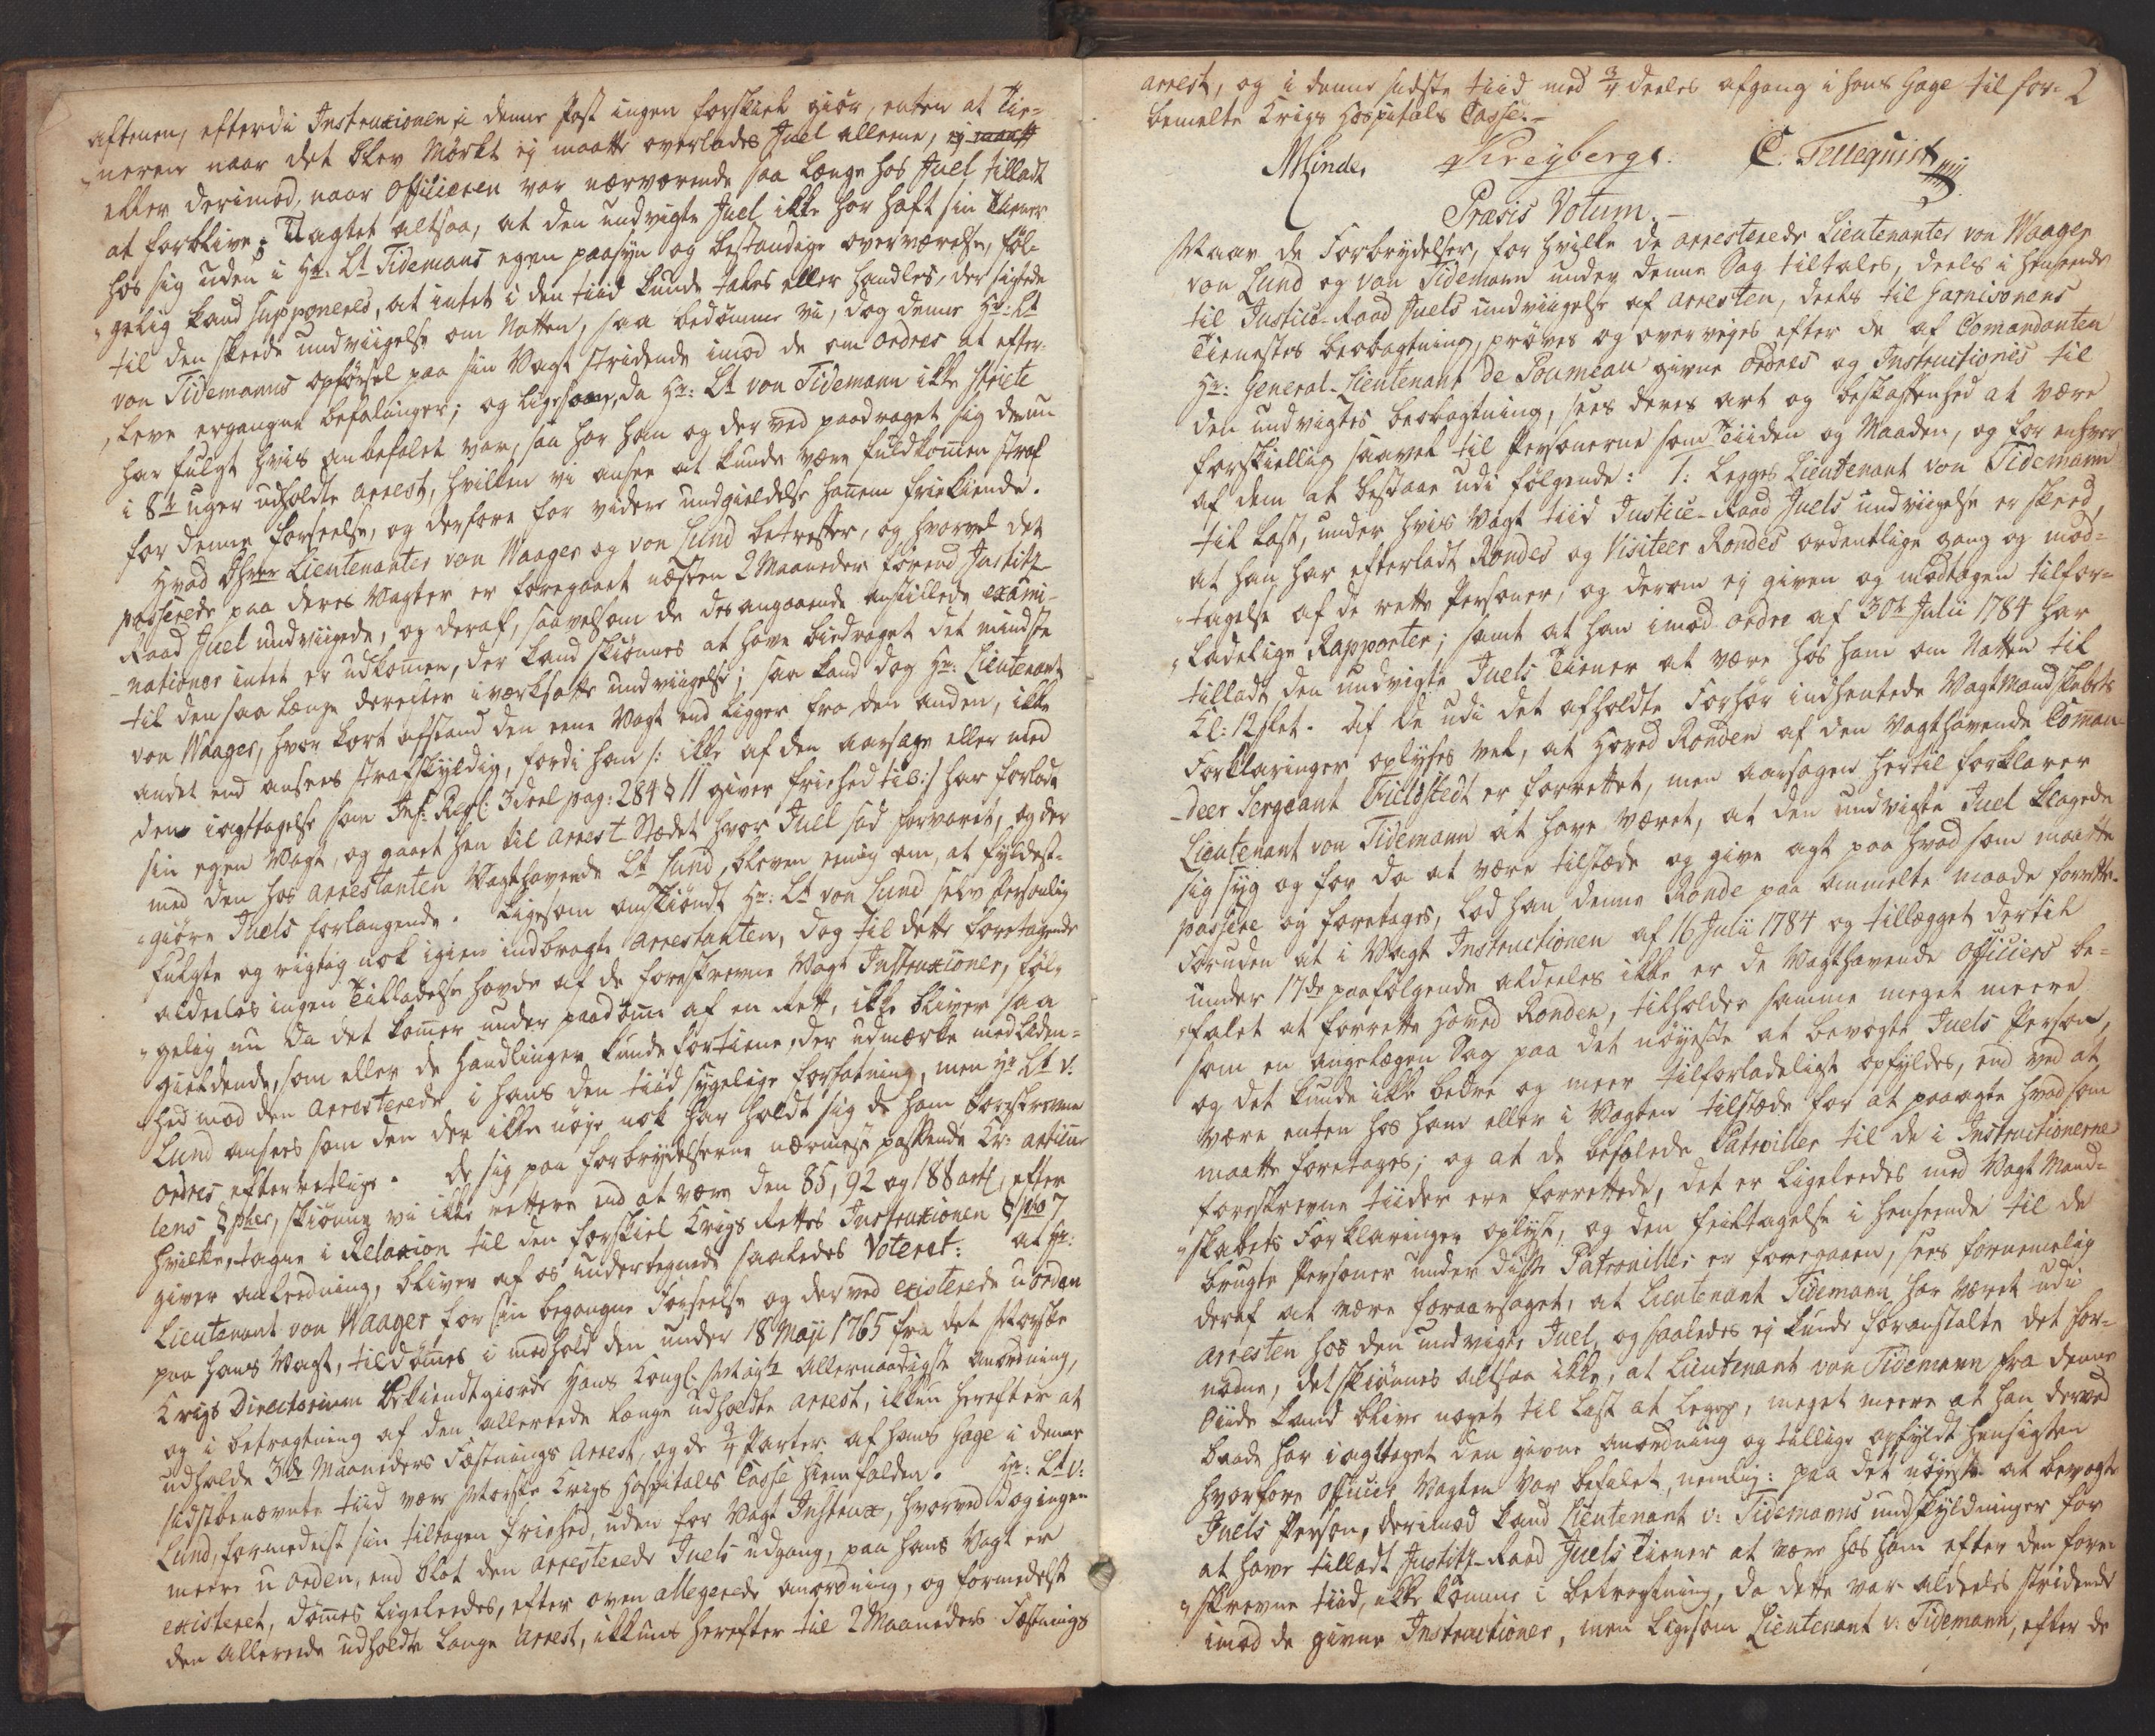 aftenen, efterdi Instruxionen i denne Post ingen forskiæl giör, enten at Tie-
„neren naar det blev Mörkt ej maatte overlades Juel alleene, ej maatte
eller derimod, naar Officieren var nærværende saa længe hos Juel tilladt
at forblive; Uagtet altsaa, at den undvigte Juel ikke har haft sin Tiener
hos sig uden i Hr: Lt Tidemans egen paasyn og bestandige overværelse, föl-
„gelig kand supponeres, at intet i den tiid kunde tales eller handles, der sigtede
til den skeede undviigelse om Natten, saa bedömme vi, dog denne Hr: Lt
von Tidemanns opförsel paa sin Vagt stridende imod de om ordres at efter-
„leve ergangne befalinger; og ligesom, da Hr: Lt von Tidemann ikke stricte
har fulgt hvis anbefalet var, saa har han og derved paadraget sig denne
i 8te uger udholdte arrest, hvilken vi ansee at kunde være fuldkommen straf
for denne forseelse, og derfore for videre undgieldelse hannem frikiende.
Hvad Hr Lieutenanter von Waager og von Lund betreffer, og hvorvel det
passerede paa deres Vagter er foregaaet næsten 2 Maaneder förend Justitz-
Raad Juel undviigede, og deraf, saavelsom de desangaaende anstillede exami-
„nationer intet er udkommen, der kand skiönnes at have bidraget det mindste
til den saa længe derefter iværksatte undviigelse; saa kand dog Hr: Lieutenant
von Waager, hvor kort afstand den eene Vagt end ligger fra den anden, ikke
andet end ansees strafskyldig, fordi han /: ikke af den aarsage eller med
den iagttagelse som Inf: Regl: 3 deel pag: 284 § 11 giver friehed til :/ har forladt
sin egen Vagt, og gaaet hen til Arrest Stædet hvor Juel sad forvaret, og der
med den hos arrestanten Vagthavende Lt Lund, bleven eenig om, at fyldest-
„giöre Juels forlangende. Ligesom omskiöndt Hr: Lt von Lund selv Personlig
fulgte og rigtig nok igien indbragte Arrestanten, dog til dette foretagende
aldeeles ingen Tilladelse havde af de foreskrevne Vagt Instruxioner, föl-
„gelig nu da det kommer under paadömme af en Rett, ikke bliver saa
gieldende, som ellers de Handlinger kunde fortiene, der udmærke medliden-
„hed mod den Arresterede i hans den tiid sygelige forfatning, men Hr Lt v:
Lund ansees som den der ikke nöje nok har holdt sig de ham foreskrevne
Ordres efterretlige. De sig paa forbrydelserne nærmest passende Kr: articu-
lens §phes, skiönne vi ikke rettere end at være den 85, 92 og 188 artl, efter
hvilke, tagne i Relation til den forskiel Krigs Rettes Instruxionen §pho 7
giver anledning, bliver af os undertegnede saaledes Voteret: at Hr:
Lieutenant von Waager for sin begangne Forseelse og derved existerede uorden
paa hans Vagt, tildömmes i medhold den under 18 Maji 1765 fra det Norske
Krigs Directorium Bekiendtgiorde Hans Kongl: Mayts allernaadigste Anordning,
og i betragtning af den allereede længe udholdte arrest, ikkun herefter at
udholde 3de Maaneders Fæstnings Arrest, og de 3/4 Parter af hans Gage i denne
sidstbenævnte tiid være Norske Krigs Hospitals Casse hiemfalden. Hr: Lt v:
Lund, formedelst sin tiltagen friehed, uden for Vagt Instrux, hvorved dog ingen
meere uorden, end blot den arresterede Juels udgang, paa hans Vagt er
existeret, dömmes ligeleedes, efter oven allegerede anordning, og formedelst
den allereede udholdte lange Arrest, ikkuns herefter til 2 Maaneders Fæstnings
arrest, og i denne sidste tiid med 3/4 deeles afgang i hans Gage til for- 2
bemelte Krigs Hospitals Casse.-
Minde. Kreyberg. C. Tellequist
Præsis Votum.-
Naar de Forbrydelser, for hvilke de arresterede Lieutenanter von Waager
von Lund og von Tidemann under denne Sag tiltales, deels i henseende
til Justice-Raad Juels undviigelse af arresten, deels til Garnisonens
Tienestes beobagtning, pröves og overveyes efter de af Comandanten
Hr: General-Lieutenant de Poumeau givne ordres og Instructionés til
den undvigtes beobagtning, sees deres art og beskaffenhed at være
forskiellig saavel til Personerne som Tiiden og Maaden, og for enhver
af dem at bestaae udi fölgende: 1: Legges Lieutenant von Tidemann
til Last, under hvis Vagt tiid Justice-Raad Juels undviigelse er skeed,
at han har efterladt Rondes og Visiteer Rondes ordentlige gang og mod-
„tagelse af de rette Personer, og derom ej given og modtagen tilfor-
„ladelige Rapporter; samt at han imod ordre af 30te Julii 1784 har
tilladt den undvigte Juels Tiener at være hos ham om Natten til
Kl: 12 slet. Af de udi det afholdte Forhör indhentede VagtMandskabets
Forklaringer oplyses vel, at Hoved Ronden af den Vagthavende Comman-
„deer Sergeant Fieldstedt er forrettet, men aarsagen hertil forklarer
Lieutenant von Tidemann at have været, at den undvigte Juel klagede
sig syg og for da at være tilstæde og give agt paa hvad som maatte
passere og foretages, lod han denne Ronde paa anmelte maade forrette.
Foruden at i Vagt Instructionen af 16 Julii 1784 og tillægget dertil
under 17de paafölgende aldeeles ikke er de Vagthavende Officiers be-
„falet at forrette Hoved Ronden, tilholder samme meget meere
som en angelægen Sag paa det nöyeste at bevogte Juels Person,
og det kunde ikke bedre og meer tilforladeligt opfyldes, end ved at
være enten hos ham eller i Vagten tilstæde for at paaagte hvad som
maatte foretages; og at de befalede Patroiller til de i Instructionerne
foreskrevne tiider ere forrettede, det er ligeleedes med Vagt Mand-
„skabets Forklaringer oplyst, og den feiltagelse i henseende til de
brugte Personer under disse Patrouiller er foregaaen, sees fornemelig
deraf at være foraarsaget, at Lieutenant Tidemann har været udi
Arresten hos den undvigte Juel, og saaledes ej kunde foranstalte det for-
nödne, det skiönnes altsaa ikke, at Lieutenant von Tidemann fra denne
Siide kand blive noget til Last at legge, meget meere at han derved
baade har iagttaget den givne anordning og tillige opfyldt hensigten
hvorfore Officier Vagten var befalet, nemlig: paa det nöyeste at bevogte
Juels Person, derimod kand Lieutenant v: Tidemanns undskyldninger for
at have tilladt Justitz-Raad Juels Tiener at være hos ham efter den fore-
„skrevne tiid, ikke komme i betragtning, da dette var aldeeles stridende
imod de givne Instructioner, men ligesom Lieutenant v: Tidemann, efter de